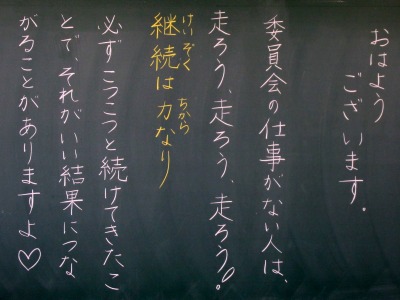 おはよう
ございます。
委員会の仕事がない人は、
走ろう、走ろう、走ろう!
継続は力なり
けいぞく ちから
必ずこつこつと続けてきたこ
とで、それがいい結果につな
がることがありますよ♡